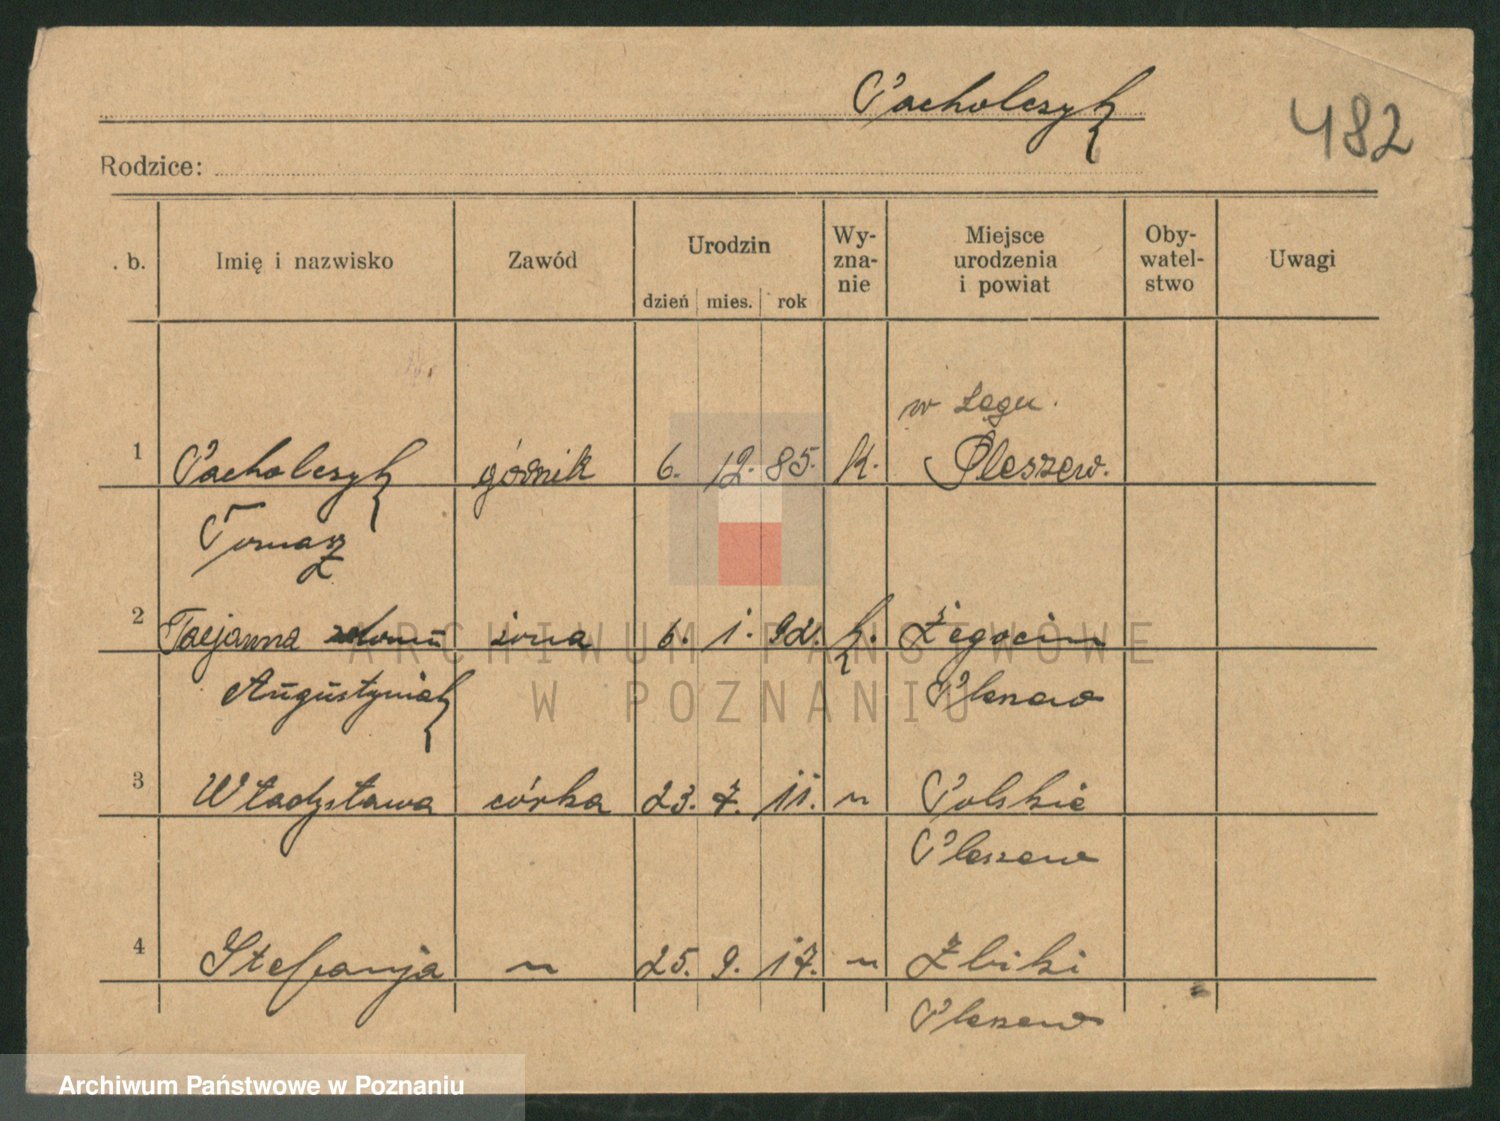 Pacholczyk
482
Rodzice:
. b. Imię i nazwisko Zawód Urodzin dzień mies. rok Wy-zna-nie Miejsce urodzenia i powiat Oby-watel-stwo Uwagi
w Łęgu.
1 Pacholczyk górnik 6. 12. 85. k. Pleszew.
Tomasz
2 żona 6. 1. 92. k. Żegocin
Augustyniak Pleszew
3 Władysława córka 23. 7. 11. " Polskie
Pleszew
4 Stefanja " 25. 9. 17. " Żbiki
Pleszew
ARCHIWUM PAŃSTWOWE
W POZNANIU
Archiwum Państwowe w Poznaniu